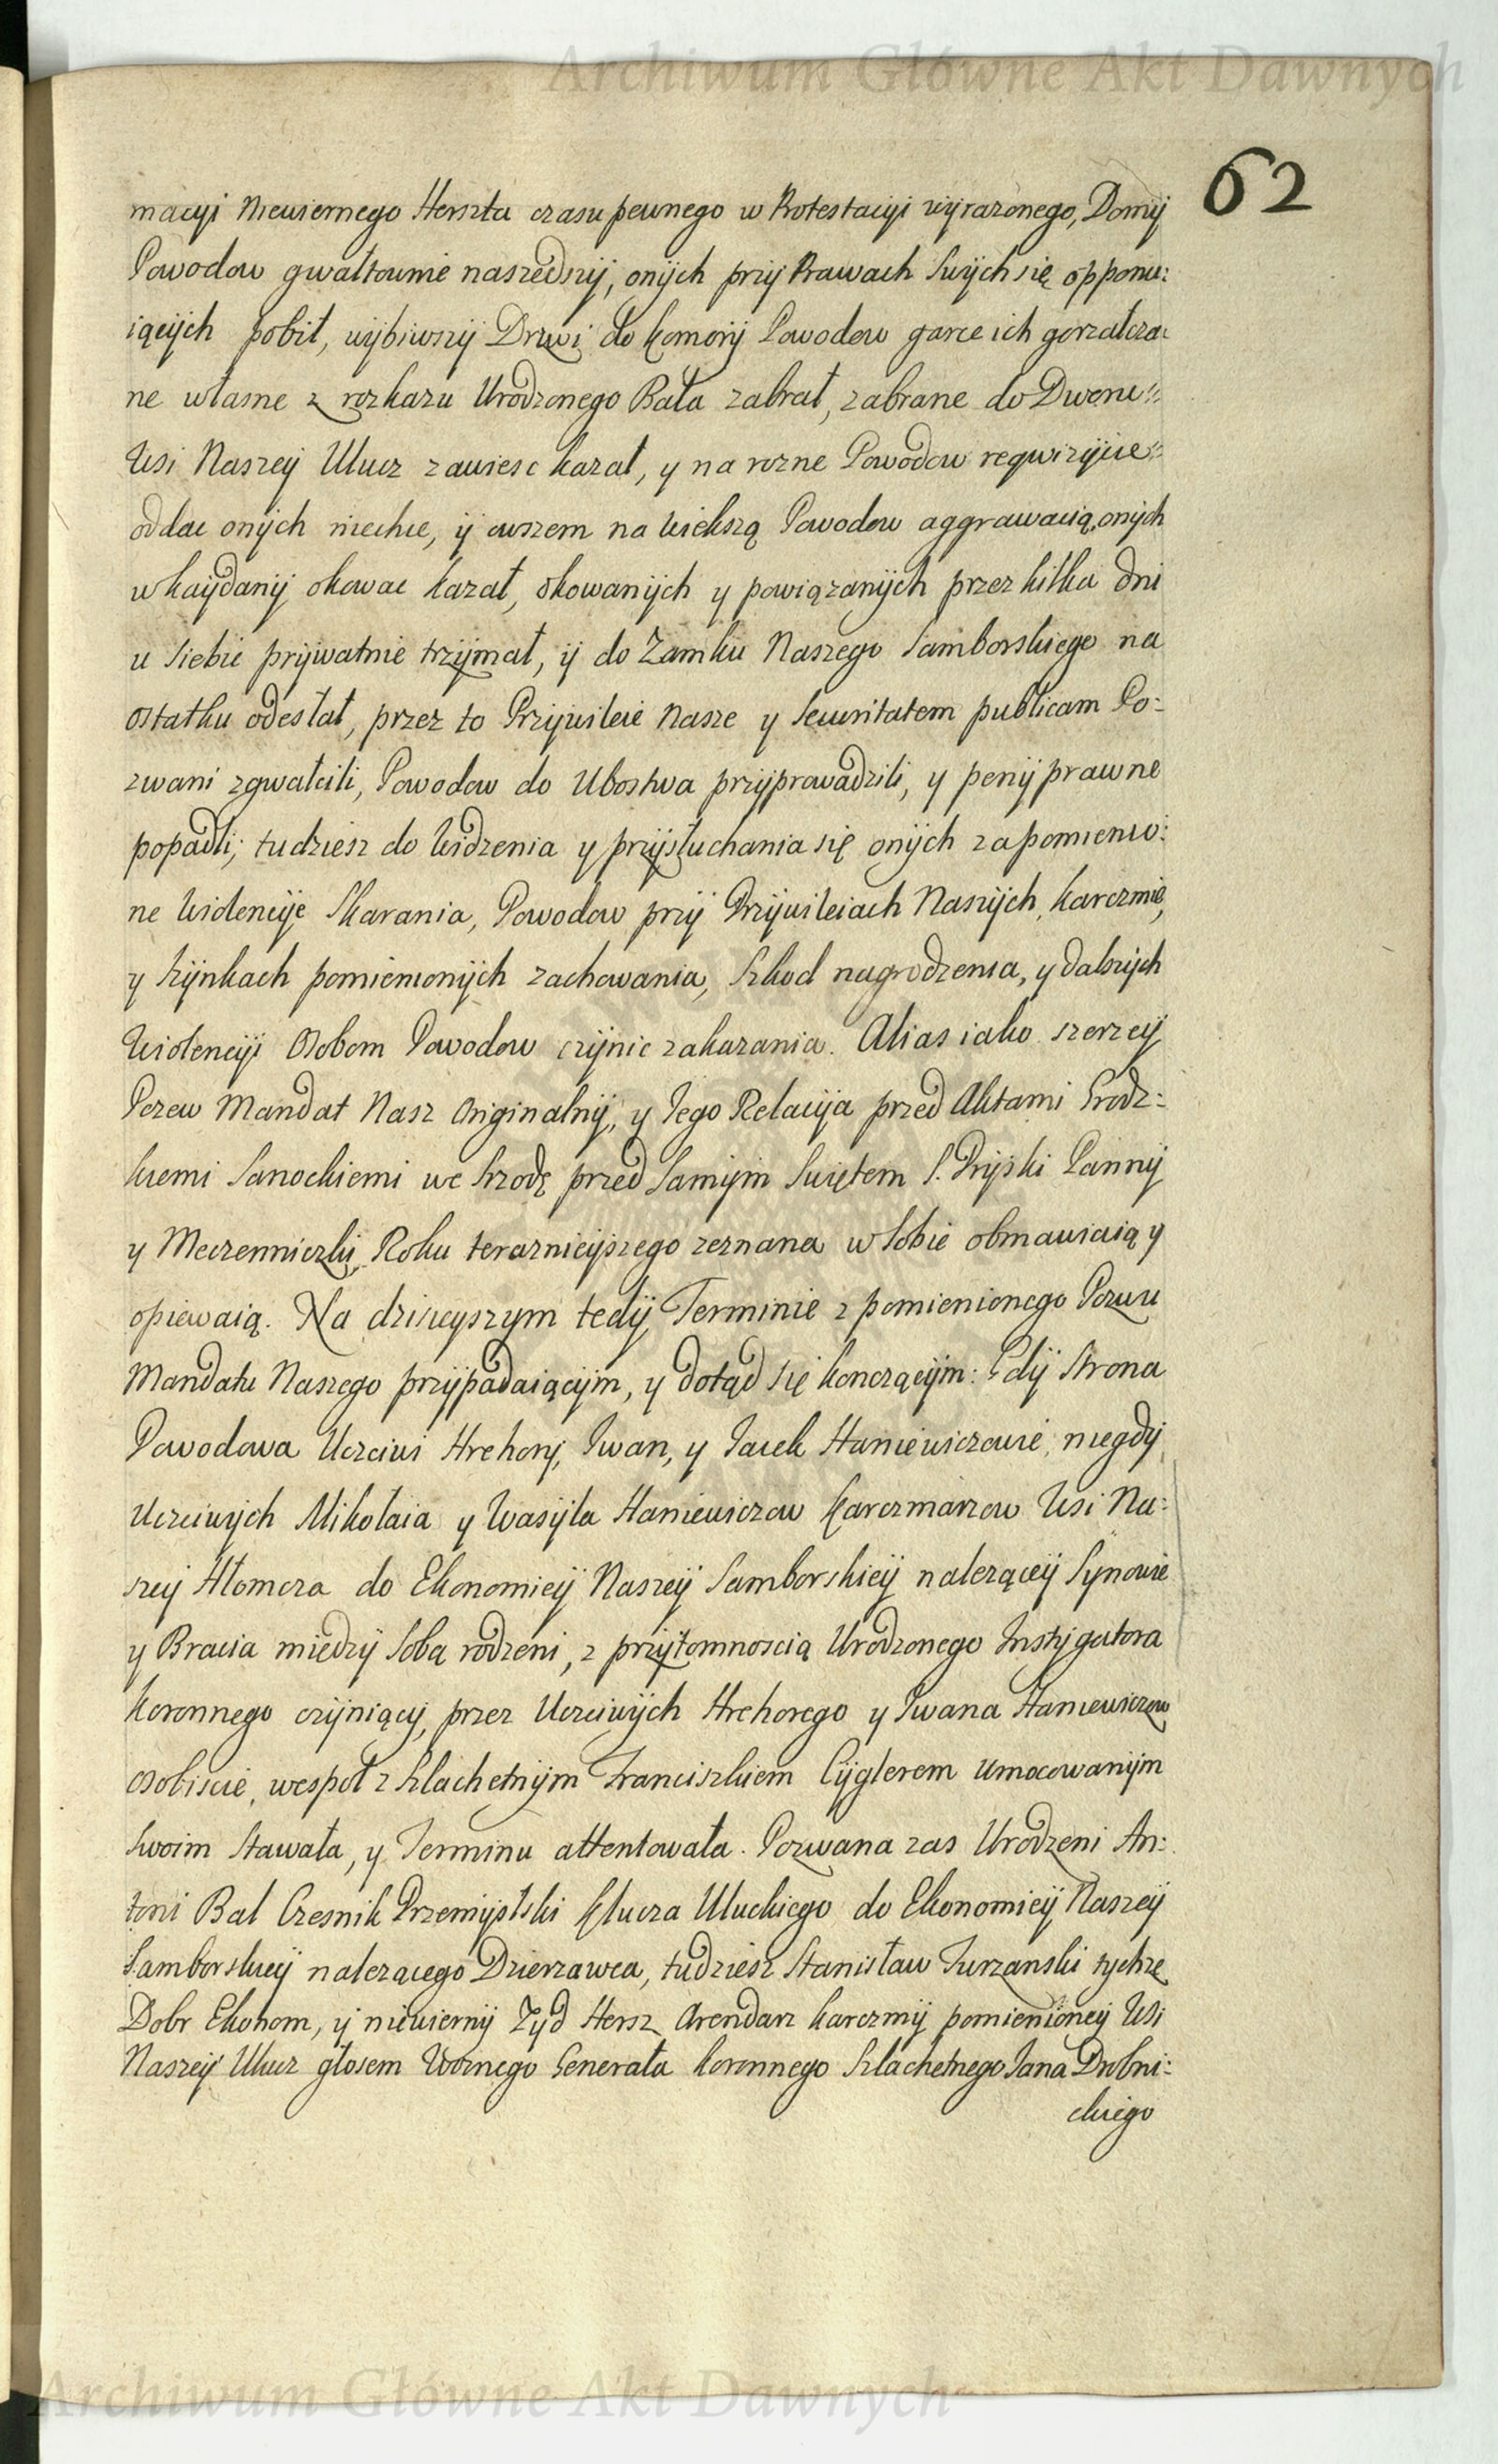 Archiwum Główne Akt Dawnych
62
macyi Niewiernego Herszta czasu pewnego w Protestacyi wyrazonego, Domy
Powodow gwałtownie naszedszy, onych przy Prawach Swych się opponu:
iących pobił, wybiwszy Drzwi do Komory Powodow garce ich gorzałcza:
ne własne z rozkazu Urodzonego Bala zabrał, zabrane do Dworu
Wsi Naszey Ulucz zawiesc kazał, y na rozne Powodow reqwizycie
oddac onych niechce, y owszem na Wiekszą Powodow aggrawacią, onych
w kaydany okowac kazał, okowanych y powiązanych przez kilka dni
u Siebie prywatnie trzymał, y do Zamku Naszego Samborskiego na
ostatku odesłał, przez to Przywileie Nasze y Securitatem publicam Po:
zwani zgwałcili, Powodow do Ubostwa przyprowadzili, y peny prawne
popadli; tudziesz do Widzenia y przysłuchania się onych za pomienio:
ne Wiolencye Skarania, Powodow przy Przywileiach Naszych, Karczmie,
y Szynkach pomienionych zachowania, Szkod nagrodzenia, y dalszych
Wiolencyi Osobom Powodow czynic zakazania. Alias iako szerzey
Pozew Mandat Nasz Originalny, y Jego Relacyja przed Aktami Grodz:
kiemi Sanockiemi we Srzodę przed Samym Swiętem S. Pryski Panny
y Meczenniczki, Roku terazniejszego zeznana w Sobie obmawiaią y
opiewaią. Na dzisieyszym tedy Terminie z pomienionego Pozwu
Mandatu Naszego przypadaiącym, y dotąd się konczącym: Gdy Strona
Powodowa Uczciwi Hrehory, Iwan, y Jacek Haniewiczowie, niegdy
Uczciwych Mikołaia y Wasyla Haniewiczow Karczmarzow Wsi Na:
szey Hłomcza do Ekonomiey Naszey Samborskiey nalezącey Synowie
y Bracia miedzy Sobą rodzeni, z przytomnoscią Urodzonego Instygatora
Koronnego czyniący, przez Uczciwych Hrehorego y Iwana Haniewiczow
osobiscie, wespoł z Szlachetnym Franciszkiem Cyglerem Umocowanym
Swoim Stawała, y Terminu attentowała. Pozwana zas Urodzeni An:
toni Bal Czesnik Przemyslski Klucza Uluckiego do Ekonomiey Naszey
Samborskiey nalezącego Dzierzawca, tudziesz Stanisław Turzanski tychze
Dobr Ekonom, y niewierny Zyd Hersz Arendarz karczmy pomienioney Wsi
Naszey Ulucz głosem Woznego Generała Koronnego Szlachetnego Jana Drobni:
ckiego
Archiwum Główne Akt Dawnych